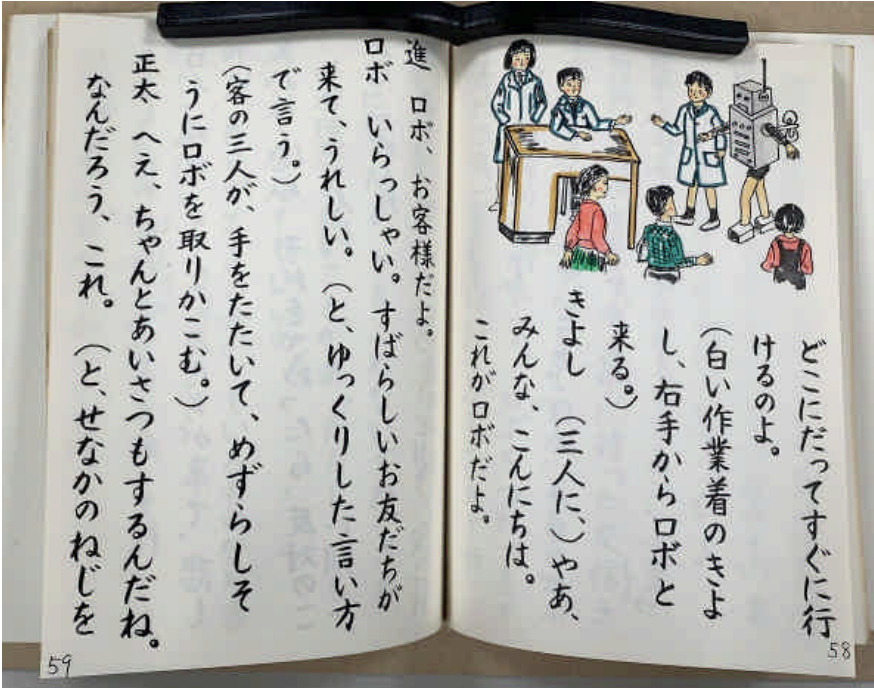 どこにだってすぐに行
けるのよ。
(白い作業着のきよ
し、右手からロボと
来る。)
きよし (三人に、)やあ、
みんな、こんにちは。
これがロボだよ。
58
進 ロボ、お客様だよ。
ロボ いらっしゃい。すばらしいお友だちが
来て、うれしい。(と、ゆっくりした言い方
で言う。)
(客の三人が、手をたたいて、めずらしそ
うにロボを取りかこむ。)
正太 へえ、ちゃんとあいさつもするんだね。
なんだろう、これ。(と、せなかのねじを
59